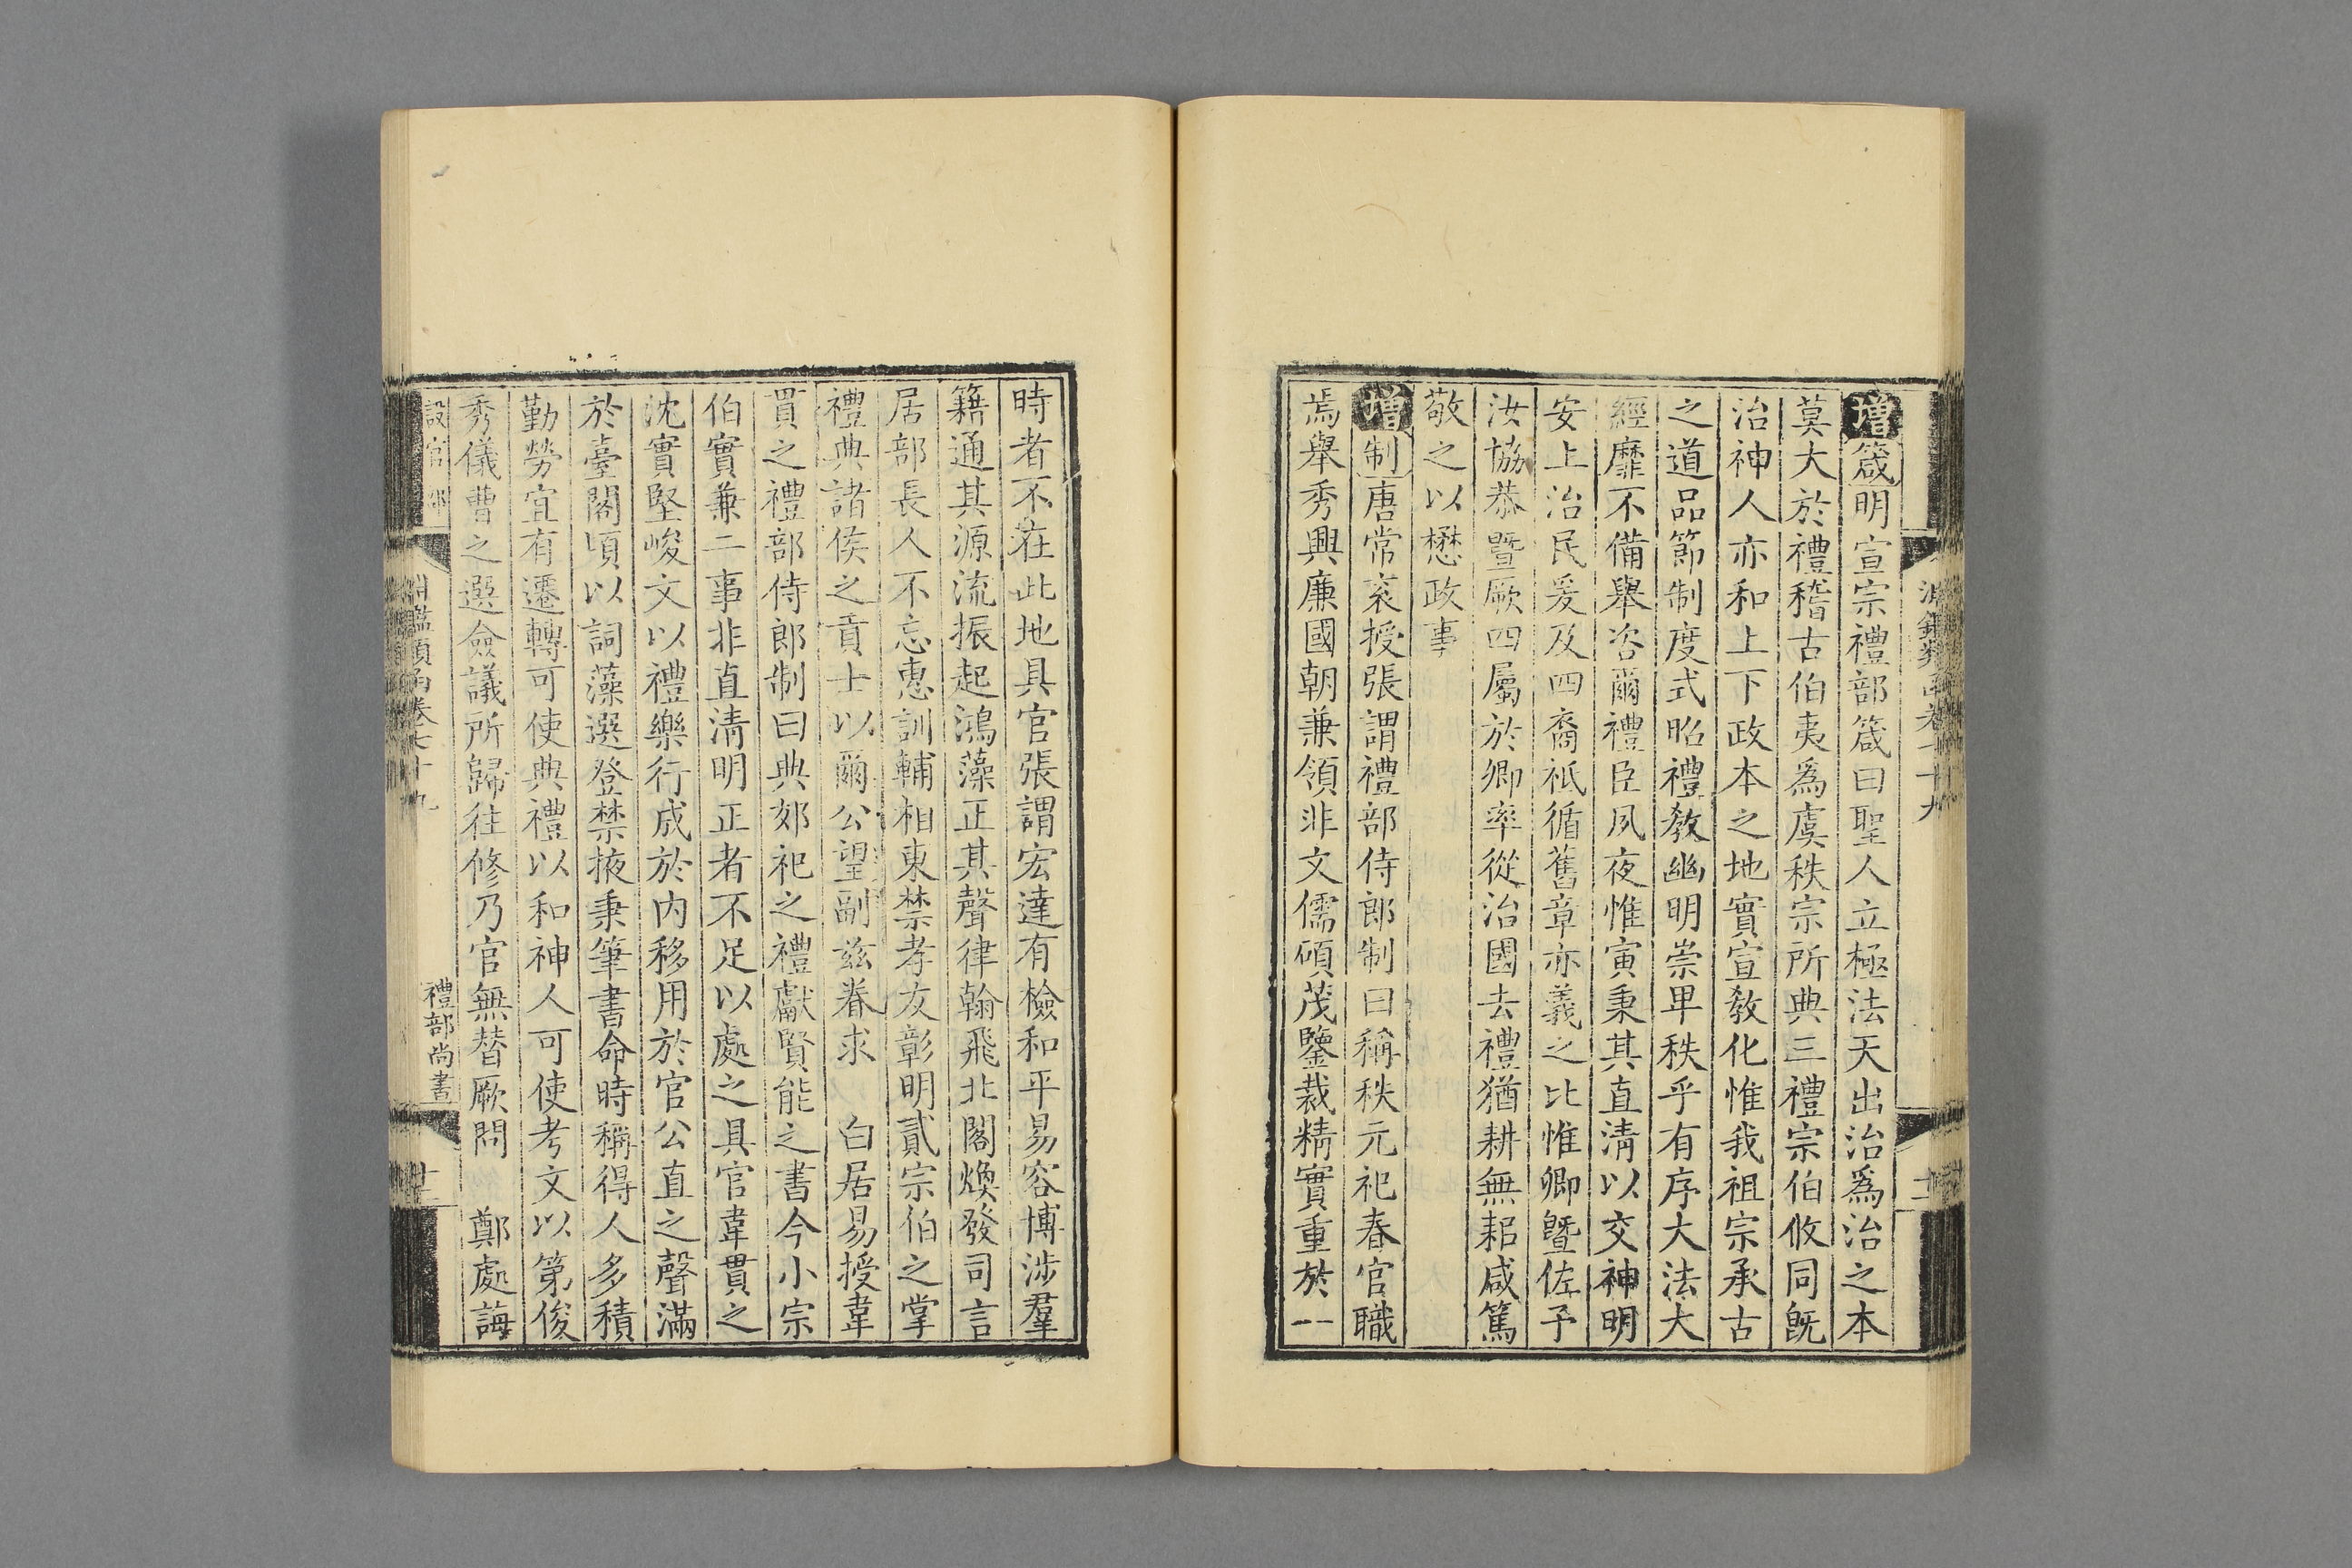 增箴明宣宗禮部箴曰聖人立極法天出治爲治之本
莫大於禮稽古伯夷爲虞秩宗所典三禮宗伯攸同旣
治神人亦和上下政本之地實宣敎化惟我祖宗承古
之道品節制度式昭禮敎幽明崇卑秩乎有序大法大
經靡不備舉咨爾禮臣夙夜惟寅秉其直淸以交神明
安上治民爰及四裔祇循舊章亦義之比惟卿曁佐予
汝協恭曁厥四屬於卿率從治國去禮猶耕無耜咸篤
敬之以懋政事
增制唐常袞授張謂禮部侍郎制曰稱秩元祀春官職
焉舉秀興廉國朝兼領非文儒碩茂鑒裁精實重於一
時者不在此地具官張謂宏達有檢和平易容博涉羣
籍通其源流振起鴻藻正其聲律翰飛北閣煥發司言
居部長人不忘惠訓輔相東禁孝友彰明貳宗伯之掌
禮典諸侯之貢士以爾公望副兹眷求　白居易授韋
貫之禮部侍郎制曰典郊祀之禮獻賢能之書今小宗
伯實兼二事非直淸明正者不足以處之具官韋貫之
沈實堅峻文以禮樂行成於內移用於官公直之聲滿
於臺閣頃以詞藻選登禁掖秉筆書命時稱得人多積
勤勞宜有遷轉可使典禮以和神人可使考文以第俊
秀儀曹之選僉議所歸往修乃官無替厥問　鄭處誨
設官部
淵鑑類函卷七十九
禮部尚書